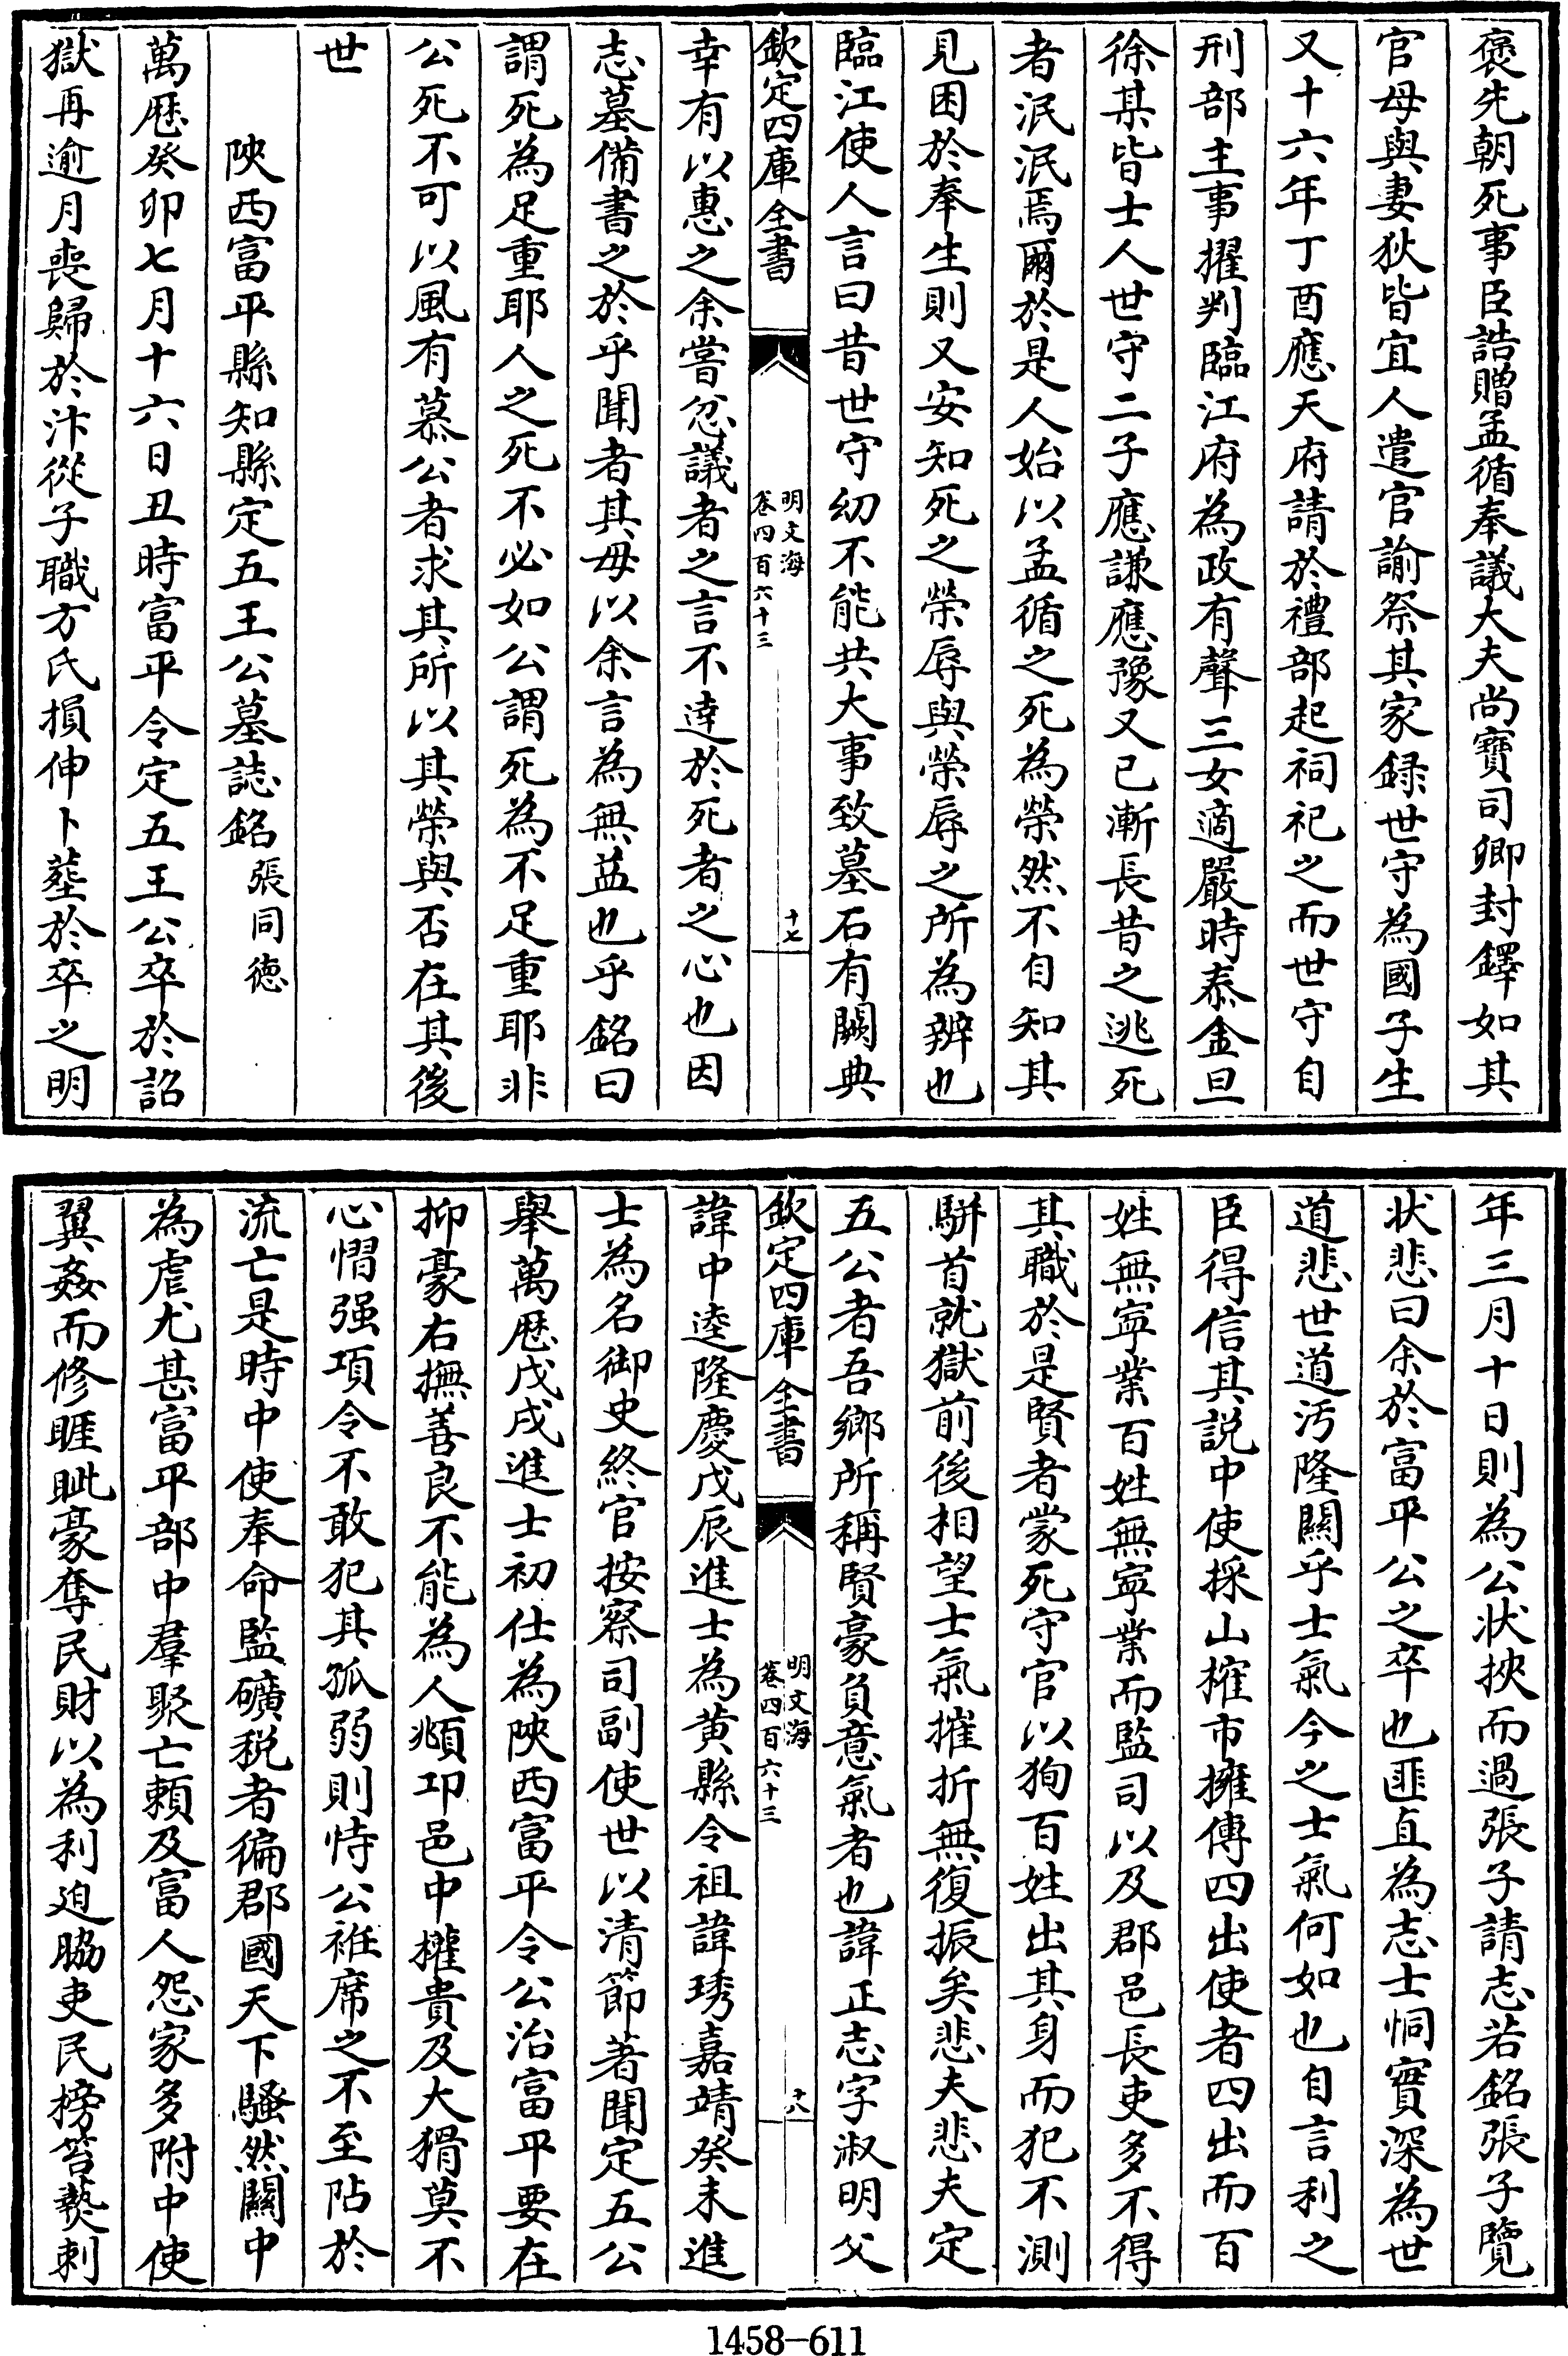 褒先朝死事臣誥贈孟循奉議大夫尚寶司卿封鐸如其
官母與妻狄皆宜人遣官諭祭其家録世守為國子生
又十六年丁酉應天府請於禮部起祠祀之而世守自
刑部主事擢判臨江府為政有聲三女適嚴時泰金旦
徐某皆士人世守二子應謙應豫又已漸長昔之逃死
者泯泯焉爾於是人始以孟循之死為榮然不自知其
見困於奉生則又安知死之榮辱與榮辱之所為辨也
臨江使人言曰昔世守幼不能共大事致墓石有闕典
欽定四庫全書
明文海
卷四百六十三
十七
幸有以惠之余嘗忿議者之言不達於死者之心也因
志墓備書之於乎聞者其毋以余言為無益也乎銘曰
謂死為足重耶人之死不必如公謂死為不足重耶非
公死不可以風有慕公者求其所以其榮與否在其後
世
陜西富平縣知縣定五王公墓誌銘張同德
萬厯癸卯七月十六日丑時富平令定五王公卒於詔
獄再逾月喪歸於汴從子職方氏損伸卜塟於卒之明
年三月十日則為公狀挾而過張子請志若銘張子覽
狀悲曰余於富平公之卒也匪直為志士恫實深為世
道悲世道汚隆關乎士氣今之士氣何如也自言利之
臣得信其説中使採山榷市擁傳四出使者四出而百
姓無寧業百姓無寧業而監司以及郡邑長吏多不得
其職於是賢者蒙死守官以狥百姓出其身而犯不測
駢首就獄前後相望士氣摧折無復振矣悲夫悲夫定
五公者吾鄉所稱賢豪負意氣者也諱正志字淑明父
欽定四庫全書
明文海
卷四百六十三
十八
諱中逵隆慶戊辰進士為黄縣令祖諱琇嘉靖癸未進
士為名御史終官按察司副使世以清節著聞定五公
舉萬厯戊戌進士初仕為陜西富平令公治富平要在
抑豪右撫善良不能為人頫卭邑中權貴及大猾莫不
心慴强項令不敢犯其孤弱則恃公袵席之不至阽於
流亡是時中使奉命監礦税者徧郡國天下騷然闗中
為虐尤甚富平部中羣聚亡頼及富人怨家多附中使
翼姦而修睚眦豪奪民財以為利迫脇吏民榜笞爇刺
1458-611